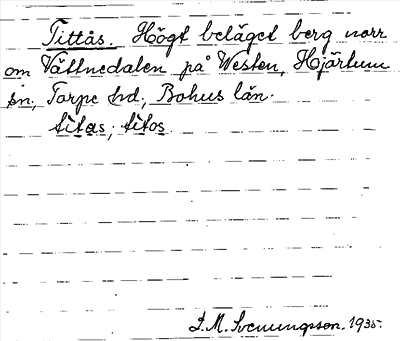 Tittås. Högt beläget berg norr
om Vättnedalen på Westen, Hjärtum
sn, Torpe hd., Bohus län.
titas; titos.
I. M. Svenungsson. 1935.